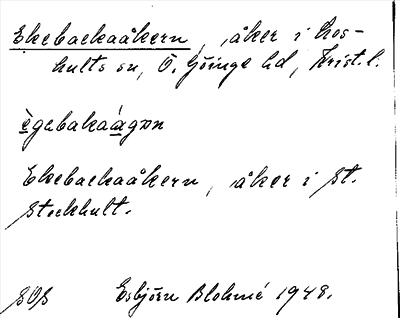 Ekebackaåkern, åker i Los-
hults sn, Ö. Göinge hd, Krist. l.
ègabakaágɒn
Ekebackaåkern, åker i St.
Stockhult.
SOS Esbjörn Blohmé 1948.